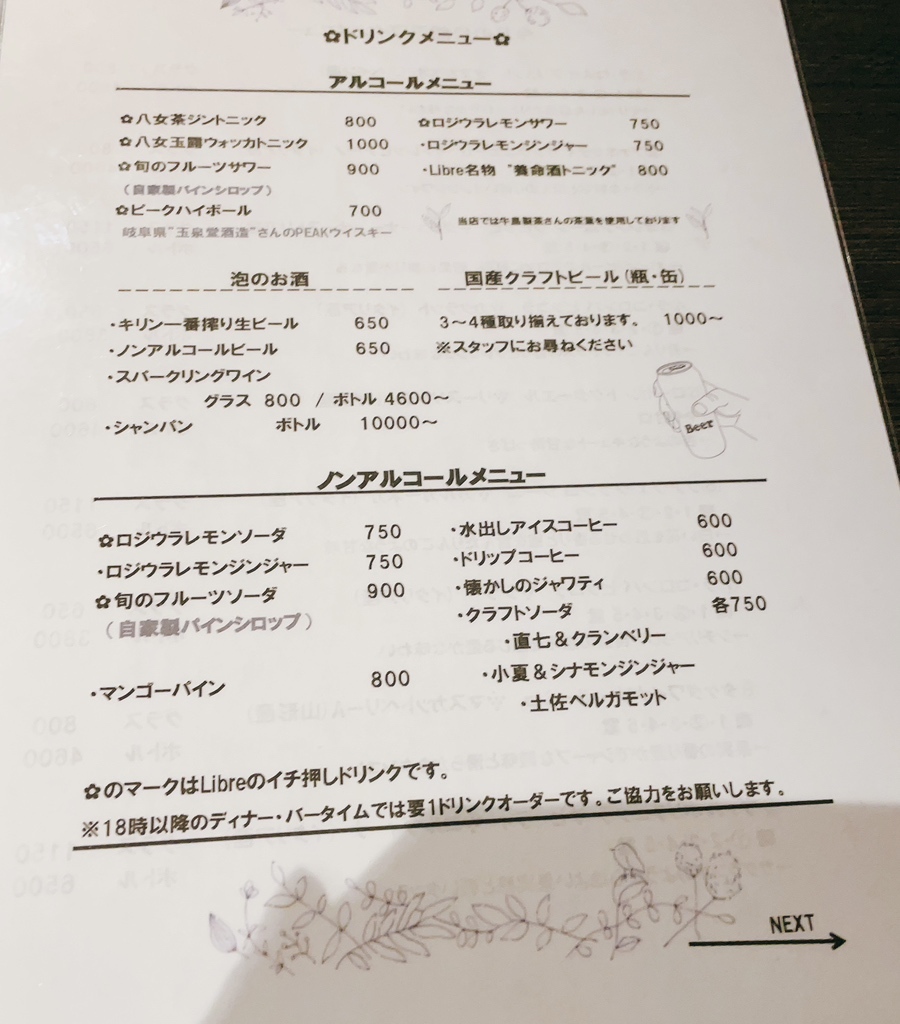 ✿ドリンクメニュー✿
アルコールメニュー
✿八女茶ジントニック 800
✿八女玉露ウォッカトニック 1000
✿旬のフルーツサワー 900
(自家製パインシロップ)
✿ピークハイボール 700
岐阜県"玉泉堂酒造"さんのPEAKウイスキー
✿ロジウラレモンサワー 750
・ロジウラレモンジンジャー 750
・Libre名物 "養命酒トニック" 800
当店では牛島製茶さんの茶葉を使用しております
泡のお酒
・キリン一番搾り生ビール 650
・ノンアルコールビール 650
・スパークリングワイン
グラス 800 / ボトル 4600〜
・シャンパン ボトル 10000〜
国産クラフトビール(瓶・缶)
3〜4種取り揃えております。 1000〜
※スタッフにお尋ねください
Beer
ノンアルコールメニュー
✿ロジウラレモンソーダ 750
・ロジウラレモンジンジャー 750
✿旬のフルーツソーダ 900
(自家製パインシロップ)
・マンゴーパイン 800
・水出しアイスコーヒー 600
・ドリップコーヒー 600
・懐かしのジャワティ 600
・クラフトソーダ 各750
・直七&クランベリー
・小夏&シナモンジンジャー
・土佐ベルガモット
✿のマークはLibreのイチ押しドリンクです。
※18時以降のディナー・バータイムでは要1ドリンクオーダーです。ご協力をお願いします。
NEXT